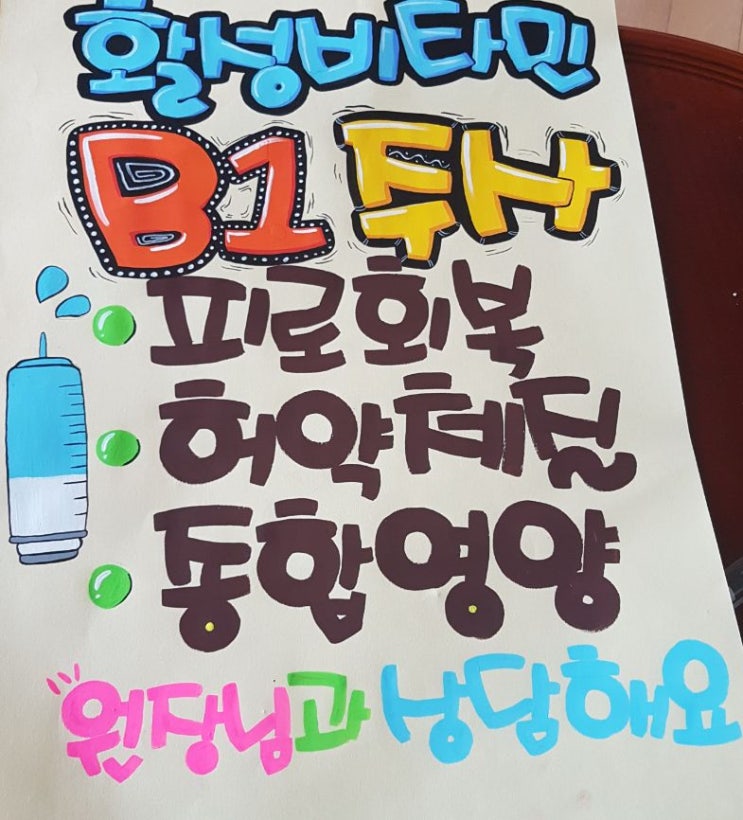 활성비타민
B1 주사
피로회복
허약체질
통합영양
원장님과 상담해요